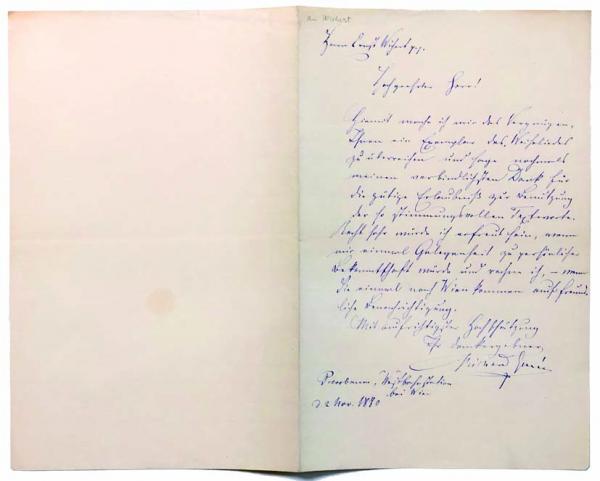 An Wichert
Herrn Ernst Wichert pp.
Hochgeehrter Herr!
Hiemit mache ich mir das Vergnügen,
Ihnen ein Exemplar des Weiheliedes
zu überreichen und sage nochmals
meinen verbindlichsten Dank für
die gütige Erlaubniß zur Benützung
der so stimmungsvollen Textworte.
Recht sehr würde ich erfreut sein, wenn
mir einmal Gelegenheit zu persönlicher
Bekanntschaft würde und rechne ich, – wenn
Sie einmal nach Wien kommen auf freund-
liche Benachrichtigung.
Mit aufrichtigster Hochschätzung
Ihr dankergebener
Westbahnstation
bei Wien
d 2 Nov. 1880